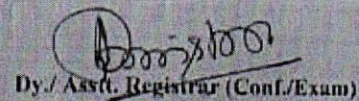 Dy./ Asstt. Registrar (Conf./Exam)